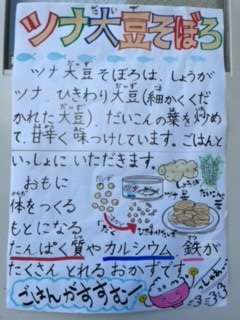 ツナ大豆そぼろ
ツナ大豆そぼろは、しょうが
ツナ、ひきわり大豆(細かくくだ
かれた大豆)、だいこんの葉を炒め
て、甘辛く味つけしています。ごはんと
いっしょにいただきます。
おもに
体をつくる
もとになる
たんぱく質やカルシウム、鉄が
たくさんとれるおかずです。
しょうが
ごはんがすすむ〜